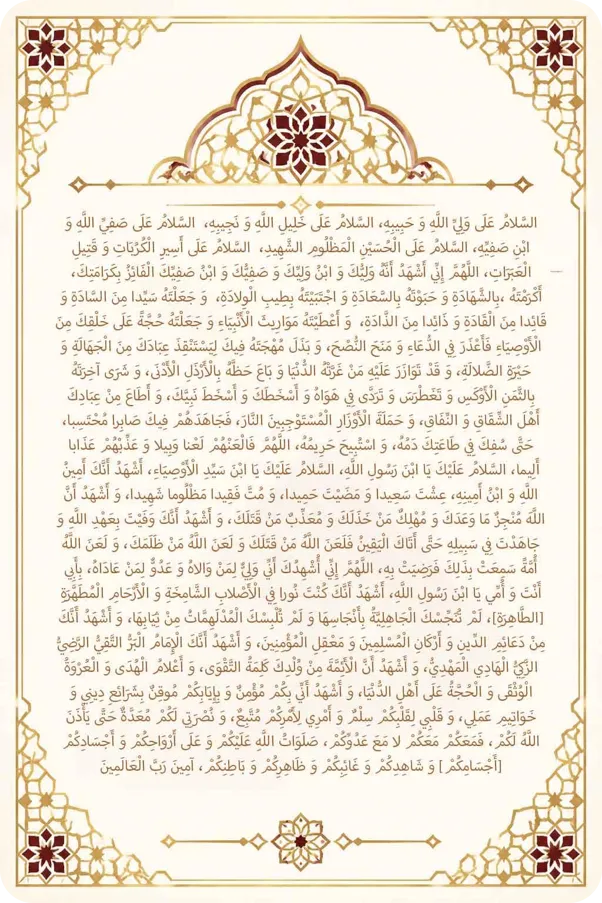 السَّلامُ عَلَى وَلِيِّ اللَّهِ وَ حَبِيبِهِ، السَّلامُ عَلَى خَلِيلِ اللَّهِ وَ نَجِيبِهِ، السَّلامُ عَلَى صَفِيِّ اللَّهِ وَ
ابْنِ صَفِيِّهِ، السَّلامُ عَلَى الْحُسَيْنِ الْمَظْلُومِ الشَّهِيدِ، السَّلامُ عَلَى أَسِيرِ الْكُرُبَاتِ وَ قَتِيلِ
الْعَبَرَاتِ، اللَّهُمَّ إِنِّي أَشْهَدُ أَنَّهُ وَلِيُّكَ وَ ابْنُ وَلِيِّكَ وَ صَفِيُّكَ وَ ابْنُ صَفِيِّكَ الْفَائِزُ بِكَرَامَتِكَ،
أَكْرَمْتَهُ ،بِالشَّهَادَةِ وَ حَبَوْتَهُ بِالسَّعَادَةِ وَ اجْتَبَيْتَهُ بِطِيبِ الْوِلادَةِ، وَ جَعَلْتَهُ سَيِّدا مِنَ السَّادَةِ وَ
قَائِدا مِنَ الْقَادَةِ وَ ذَائِدا مِنَ الذَّادَةِ، وَ أَعْطَيْتَهُ مَوَارِيثَ الْأَنْبِيَاءِ وَ جَعَلْتَهُ حُجَّةً عَلَى خَلْقِكَ مِنَ
الْأَوْصِيَاءِ فَأَعْذَرَ فِي الدُّعَاءِ وَ مَنَحَ النُّصْحَ، وَ بَذَلَ مُهْجَتَهُ فِيكَ لِيَسْتَنْقِذَ عِبَادَكَ مِنَ الْجَهَالَةِ وَ
حَيْرَةِ الضَّلالَةِ، وَ قَدْ تَوَازَرَ عَلَيْهِ مَنْ غَرَّتْهُ الدُّنْيَا وَ بَاعَ حَظَّهُ بِالْأَرْذَلِ الْأَدْنَى، وَ شَرَى آخِرَتَهُ
بِالثَّمَنِ الْأَوْكَسِ وَ تَغَطْرَسَ وَ تَرَدَّى فِي هَوَاهُ وَ أَسْخَطَكَ وَ أَسْخَطَ نَبِيَّكَ، وَ أَطَاعَ مِنْ عِبَادِكَ
أَهْلَ الشِّقَاقِ وَ النِّفَاقِ، وَ حَمَلَةَ الْأَوْزَارِ الْمُسْتَوْجِبِينَ النَّارَ، فَجَاهَدَهُمْ فِيكَ صَابِرا مُحْتَسِبا،
حَتَّى سُفِكَ فِي طَاعَتِكَ دَمُهُ، وَ اسْتُبِيحَ حَرِيمُهُ، اللَّهُمَّ فَالْعَنْهُمْ لَعْنا وَبِيلا وَ عَذِّبْهُمْ عَذَابا
أَلِيما، السَّلامُ عَلَيْكَ يَا ابْنَ رَسُولِ اللَّهِ، السَّلامُ عَلَيْكَ يَا ابْنَ سَيِّدِ الْأَوْصِيَاءِ، أَشْهَدُ أَنَّكَ أَمِينُ
اللَّهِ وَ ابْنُ أَمِينِهِ، عِشْتَ سَعِيدا وَ مَضَيْتَ حَمِيدا، وَ مُتَّ فَقِيدا مَظْلُوما شَهِيدا، وَ أَشْهَدُ أَنَّ
اللَّهَ مُنْجِزٌ مَا وَعَدَكَ وَ مُهْلِكٌ مَنْ خَذَلَكَ وَ مُعَذِّبٌ مَنْ قَتَلَكَ، وَ أَشْهَدُ أَنَّكَ وَفَيْتَ بِعَهْدِ اللَّهِ وَ
جَاهَدْتَ فِي سَبِيلِهِ حَتَّى أَتَاكَ الْيَقِينُ فَلَعَنَ اللَّهُ مَنْ قَتَلَكَ وَ لَعَنَ اللَّهُ مَنْ ظَلَمَكَ، وَ لَعَنَ اللَّهُ
أُمَّةً سَمِعَتْ بِذَلِكَ فَرَضِيَتْ بِهِ، اللَّهُمَّ إِنِّي أُشْهِدُكَ أَنِّي وَلِيٌّ لِمَنْ وَالاهُ وَ عَدُوٌّ لِمَنْ عَادَاهُ، بِأَبِي
أَنْتَ وَ أُمِّي يَا ابْنَ رَسُولِ اللَّهِ، أَشْهَدُ أَنَّكَ كُنْتَ نُورا فِي الْأَصْلابِ الشَّامِخَةِ وَ الْأَرْحَامِ الْمُطَهَّرَةِ
[الطَّاهِرَةِ]، لَمْ تُنَجِّسْكَ الْجَاهِلِيَّةُ بِأَنْجَاسِهَا وَ لَمْ تُلْبِسْكَ الْمُدْلَهِمَّاتُ مِنْ ثِيَابِهَا، وَ أَشْهَدُ أَنَّكَ
مِنْ دَعَائِمِ الدِّينِ وَ أَرْكَانِ الْمُسْلِمِينَ وَ مَعْقِلِ الْمُؤْمِنِينَ، وَ أَشْهَدُ أَنَّكَ الْإِمَامُ الْبَرُّ التَّقِيُّ الرَّضِيُّ
الزَّكِيُّ الْهَادِي الْمَهْدِيُّ، وَ أَشْهَدُ أَنَّ الْأَئِمَّةَ مِنْ وُلْدِكَ كَلِمَةُ التَّقْوَى، وَ أَعْلامُ الْهُدَى وَ الْعُرْوَةُ
الْوُثْقَى وَ الْحُجَّةُ عَلَى أَهْلِ الدُّنْيَا، وَ أَشْهَدُ أَنِّي بِكُمْ مُؤْمِنٌ وَ بِإِيَابِكُمْ مُوقِنٌ بِشَرَائِعِ دِينِي وَ
خَوَاتِيمِ عَمَلِي، وَ قَلْبِي لِقَلْبِكُمْ سِلْمٌ وَ أَمْرِي لِأَمْرِكُمْ مُتَّبِعٌ، وَ نُصْرَتِي لَكُمْ مُعَدَّةٌ حَتَّى يَأْذَنَ
اللَّهُ لَكُمْ، فَمَعَكُمْ مَعَكُمْ لا مَعَ عَدُوِّكُمْ، صَلَوَاتُ اللَّهِ عَلَيْكُمْ وَ عَلَى أَرْوَاحِكُمْ وَ أَجْسَادِكُمْ
[أَجْسَامِكُمْ] وَ شَاهِدِكُمْ وَ غَائِبِكُمْ وَ ظَاهِرِكُمْ وَ بَاطِنِكُمْ، آمِينَ رَبَّ الْعَالَمِينَ